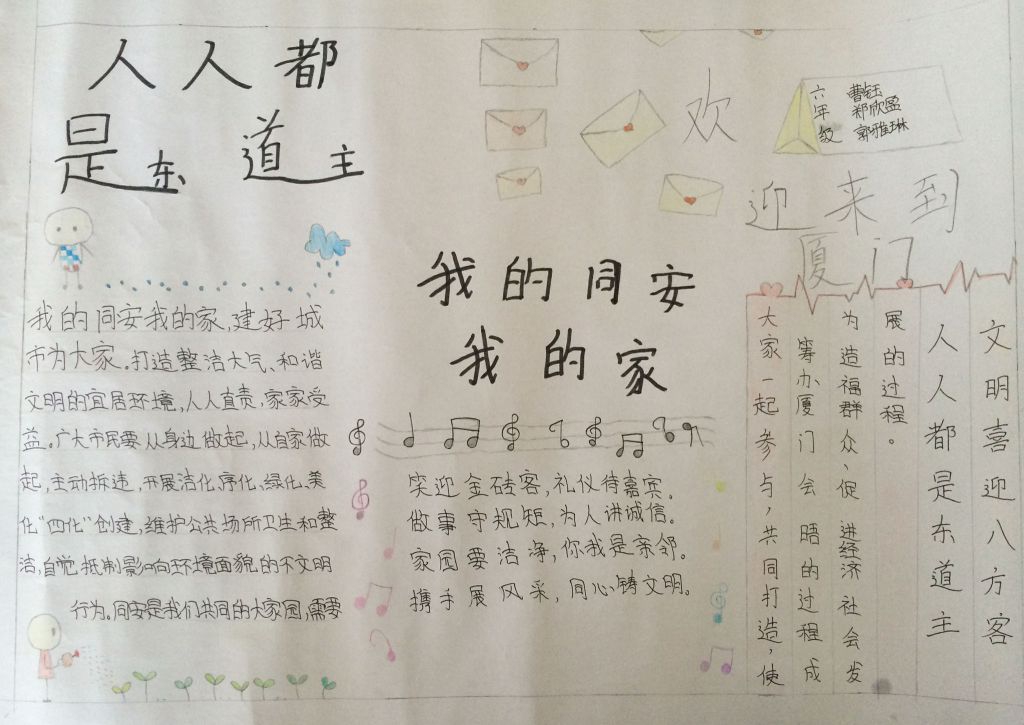 人人都
是东道主
欢
迎来到
厦门
六年级
曹钰
郑欣盈
郭雅琳
我的同安
我的家
我的同安我的家,建好城
市为大家.打造整洁大气、和谐
文明的宜居环境,人人直责,家家受
益.广大市民要从身边做起,从自家做
起,主动拆违,开展洁化、序化、绿化、美
化"四化"创建,维护公共场所卫生和整
洁,自觉抵制影响环境面貌的不文明
行为.同安是我们共同的大家园,需要
笑迎金砖客,礼仪待嘉宾。
做事守规短,为人讲诚信。
家园要洁净,你我是亲邻。
携手展风采,同心铸文明。
大家一起参与,共同打造,使
筹办厦门会晤的过程成
为造福群众、促进经济社会发
展的过程。
文明喜迎八方客
人人都是东道主